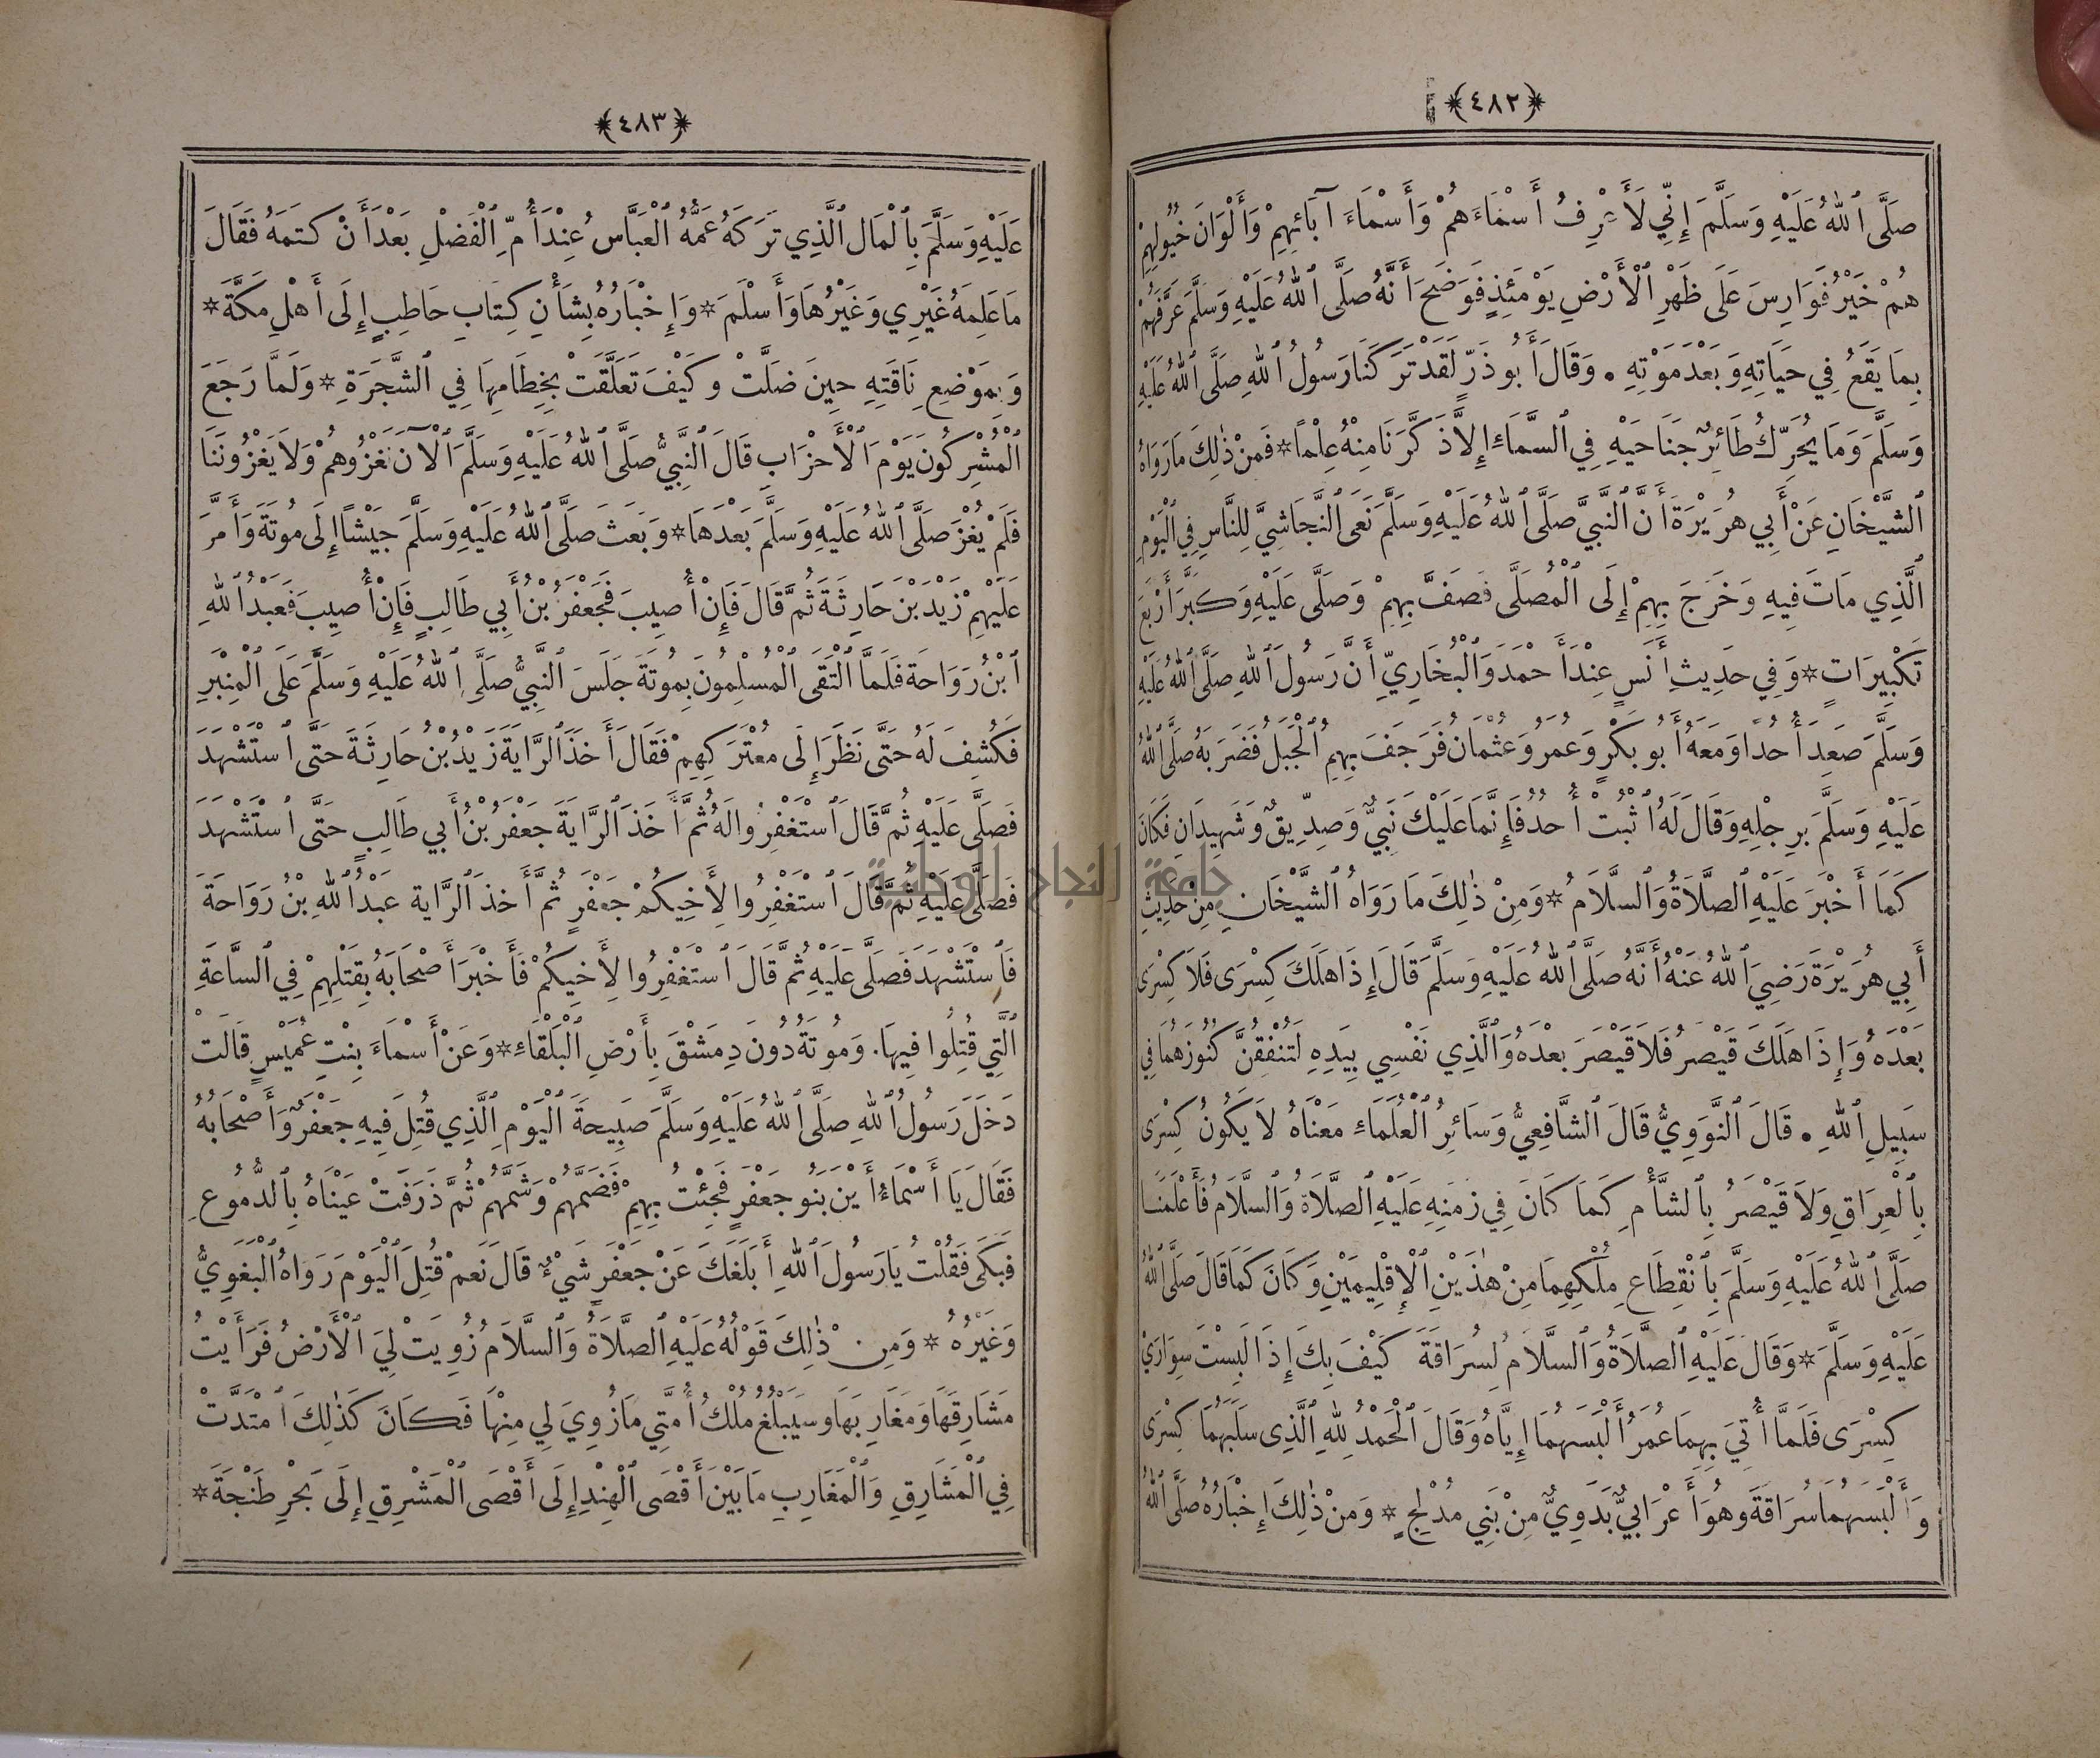 ﴿٤٨٢﴾
صَلَّى ٱللهُ عَلَيْهِ وَسَلَّمَ إِنِّي لَأَعْرِفُ أَسْمَاءَهُمْ وَأَسْمَاءَ آبَائِهِمْ وَأَلْوَانَ خُيُولِهِمْ
هُمْ خَيْرُ فَوَارِسَ عَلَى ظَهْرِ ٱلْأَرْضِ يَوْمَئِذٍ فَوَضَحَ أَنَّهُ صَلَّى ٱللهُ عَلَيْهِ وَسَلَّمَ عَرَّفَهُمْ
بِمَا يَقَعُ فِي حَيَاتِهِ وَبَعْدَ مَوْتِهِ . وَقَالَ أَبُو ذَرٍّ لَقَدْ تَرَكَنَا رَسُولُ ٱللهِ صَلَّى ٱللهُ عَلَيْهِ
وَسَلَّمَ وَمَا يُحَرِّكُ طَائِرٌ جَنَاحَيْهِ فِي ٱلسَّمَاءِ إِلاَّ ذَكَّرَنَا مِنْهُ عِلْماً * فَمِنْ ذٰلِكَ مَا رَوَاهُ
ٱلشَّيْخَانِ عَنْ أَبِي هُرَيْرَةَ أَنَّ ٱلنَّبِيَّ صَلَّى ٱللهُ عَلَيْهِ وَسَلَّمَ نَعَى ٱلنَّجَاشِيَّ لِلنَّاسِ فِي ٱلْيَوْمِ
ٱلَّذِي مَاتَ فِيهِ وَخَرَجَ بِهِمْ إِلَى ٱلْمُصَلَّى فَصَفَّ بِهِمْ وَصَلَّى عَلَيْهِ وَكَبَّرَ أَرْبَعَ
تَكْبِيرَاتٍ * وَفِي حَدِيثِ أَنَسٍ عِنْدَ أَحْمَدَ وَٱلْبُخَارِيِّ أَنَّ رَسُولَ ٱللهِ صَلَّى ٱللهُ عَلَيْهِ
وَسَلَّمَ صَعِدَ أُحُداً وَمَعَهُ أَبُو بَكْرٍ وَعُمَرُ وَعُثْمَانُ فَرَجَفَ بِهِمُ ٱلْجَبَلُ فَضَرَبَهُ صَلَّى ٱللهُ
عَلَيْهِ وَسَلَّمَ بِرِجْلِهِ وَقَالَ لَهُ ٱثْبُتْ أُحُدُ فَإِنَّمَا عَلَيْكَ نَبِيٌّ وَصِدِّيقٌ وَشَهِيدَانِ فَكَانَ
كَمَا أَخْبَرَ عَلَيْهِ ٱلصَّلاَةُ وَٱلسَّلاَمُ * وَمِنْ ذٰلِكَ مَا رَوَاهُ ٱلشَّيْخَانِ مِنْ حَدِيثِ
أَبِي هُرَيْرَةَ رَضِيَ ٱللهُ عَنْهُ أَنَّهُ صَلَّى ٱللهُ عَلَيْهِ وَسَلَّمَ قَالَ إِذَا هَلَكَ كِسْرَى فَلاَ كِسْرَى
بَعْدَهُ وَإِذَا هَلَكَ قَيْصَرُ فَلاَ قَيْصَرَ بَعْدَهُ وَٱلَّذِي نَفْسِي بِيَدِهِ لَتُنْفِقُنَّ كُنُوزَهُمَا فِي
سَبِيلِ ٱللهِ . قَالَ ٱلنَّوَوِيُّ قَالَ ٱلشَّافِعِيُّ وَسَائِرُ ٱلْعُلَمَاءِ مَعْنَاهُ لاَ يَكُونُ كِسْرَى
بِٱلْعِرَاقِ وَلاَ قَيْصَرُ بِٱلشَّأْمِ كَمَا كَانَ فِي زَمَنِهِ عَلَيْهِ ٱلصَّلاَةُ وَٱلسَّلاَمُ فَأَعْلَمَنَا
صَلَّى ٱللهُ عَلَيْهِ وَسَلَّمَ بِٱنْقِطَاعِ مُلْكِهِمَا مِنْ هٰذَيْنِ ٱلْإِقْلِيمَيْنِ وَكَانَ كَمَا قَالَ صَلَّى ٱللهُ
عَلَيْهِ وَسَلَّمَ * وَقَالَ عَلَيْهِ ٱلصَّلاَةُ وَٱلسَّلاَمُ لِسُرَاقَةَ كَيْفَ بِكَ إِذَا لَبِسْتَ سِوَارَيْ
كِسْرَى فَلَمَّا أُتِيَ بِهِمَا عُمَرُ أَلْبَسَهُمَا إِيَّاهُ وَقَالَ ٱلْحَمْدُ لِلهِ ٱلَّذِى سَلَبَهُمَا كِسْرَى
وَأَلْبَسَهُمَا سُرَاقَةَ وَهُوَ أَعْرَابِيٌّ بَدَوِيٌّ مِنْ بَنِي مُدْلِجٍ * وَمِنْ ذٰلِكَ إِخْبَارُهُ صَلَّى ٱللهُ
﴿٤٨٣﴾
عَلَيْهِ وَسَلَّمَ بِٱلْمَالِ ٱلَّذِي تَرَكَهُ عَمُّهُ ٱلْعَبَّاسُ عِنْدَ أُمِّ ٱلْفَضْلِ بَعْدَ أَنْ كَتَمَهُ فَقَالَ
مَا عَلِمَهُ غَيْرِي وَغَيْرُهَا وَأَسْلَمَ * وَإِخْبَارُهُ بِشَأْنِ كِتَابِ حَاطِبٍ إِلَى أَهْلِ مَكَّةَ *
وَبِمَوْضِعِ نَاقَتِهِ حِينَ ضَلَّتْ وَكَيْفَ تَعَلَّقَتْ بِخِطَامِهَا فِي ٱلشَّجَرَةِ * وَلَمَّا رَجَعَ
ٱلْمُشْرِكُونَ يَوْمَ ٱلْأَحْزَابِ قَالَ ٱلنَّبِيُّ صَلَّى ٱللهُ عَلَيْهِ وَسَلَّمَ ٱلْآنَ نَغْزُوهُمْ وَلاَ يَغْزُونَنَا
فَلَمْ يُغْزَ صَلَّى ٱللهُ عَلَيْهِ وَسَلَّمَ بَعْدَهَا * وَبَعَثَ صَلَّى ٱللهُ عَلَيْهِ وَسَلَّمَ جَيْشاً إِلَى مُوتَةَ وَأَمَّرَ
عَلَيْهِمْ زَيْدَ بْنَ حَارِثَةَ ثُمَّ قَالَ فَإِنْ أُصِيبَ فَجَعْفَرُ بْنُ أَبِي طَالِبٍ فَإِنْ أُصِيبَ فَعَبْدُ ٱللهِ
ٱبْنُ رَوَاحَةَ فَلَمَّا ٱلْتَقَى ٱلْمُسْلِمُونَ بِمُوتَةَ جَلَسَ ٱلنَّبِيُّ صَلَّى ٱللهُ عَلَيْهِ وَسَلَّمَ عَلَى ٱلْمِنْبَرِ
فَكُشِفَ لَهُ حَتَّى نَظَرَ إِلَى مُعْتَرَكِهِمْ فَقَالَ أَخَذَ ٱلرَّايَةَ زَيْدُ بْنُ حَارِثَةَ حَتَّى ٱسْتُشْهِدَ
فَصَلَّى عَلَيْهِ ثُمَّ قَالَ ٱسْتَغْفِرُوا لَهُ ثُمَّ أَخَذَ ٱلرَّايَةَ جَعْفَرُ بْنُ أَبِي طَالِبٍ حَتَّى ٱسْتُشْهِدَ
فَصَلَّى عَلَيْهِ ثُمَّ قَالَ ٱسْتَغْفِرُوا لِأَخِيكُمْ جَعْفَرٍ ثُمَّ أَخَذَ ٱلرَّايَةَ عَبْدُ ٱللهِ بْنُ رَوَاحَةَ
فَٱسْتُشْهِدَ فَصَلَّى عَلَيْهِ ثُمَّ قَالَ ٱسْتَغْفِرُوا لِأَخِيكُمْ فَأَخْبَرَ أَصْحَابَهُ بِقَتْلِهِمْ فِي ٱلسَّاعَةِ
ٱلَّتِي قُتِلُوا فِيهَا. وَمُوتَةُ دُونَ دِمَشْقَ بِأَرْضِ ٱلْبَلْقَاءِ * وَعَنْ أَسْمَاءَ بِنْتِ عُمَيْسٍ قَالَتْ
دَخَلَ رَسُولُ ٱللهِ صَلَّى ٱللهُ عَلَيْهِ وَسَلَّمَ صَبِيحَةَ ٱلْيَوْمِ ٱلَّذِي قُتِلَ فِيهِ جَعْفَرٌ وَأَصْحَابُهُ
فَقَالَ يَا أَسْمَاءُ أَيْنَ بَنُو جَعْفَرٍ فَجِئْتُ بِهِمْ فَضَمَّهُمْ وَشَمَّهُمْ ثُمَّ ذَرَفَتْ عَيْنَاهُ بِٱلدُّمُوعِ
فَبَكَى فَقُلْتُ يَا رَسُولَ ٱللهِ أَبَلَغَكَ عَنْ جَعْفَرٍ شَيْءٌ قَالَ نَعَمْ قُتِلَ ٱلْيَوْمَ رَوَاهُ ٱلْبَغَوِيُّ
وَغَيْرُهُ * وَمِنْ ذٰلِكَ قَوْلُهُ عَلَيْهِ ٱلصَّلاَةُ وَٱلسَّلاَمُ زُوِيَتْ لِيَ ٱلْأَرْضُ فَرَأَيْتُ
مَشَارِقَهَا وَمَغَارِبَهَا وَسَيَبْلُغُ مُلْكُ أُمَّتِي مَا زُوِيَ لِي مِنْهَا فَكَانَ كَذٰلِكَ ٱمْتَدَّتْ
فِي ٱلْمَشَارِقِ وَٱلْمَغَارِبِ مَا بَيْنَ أَقْصَى ٱلْهِنْدِ إِلَى أَقْصَى ٱلْمَشْرِقِ إِلَى بَحْرِ طَنْجَةَ *
جامعة النجاح الوطنية